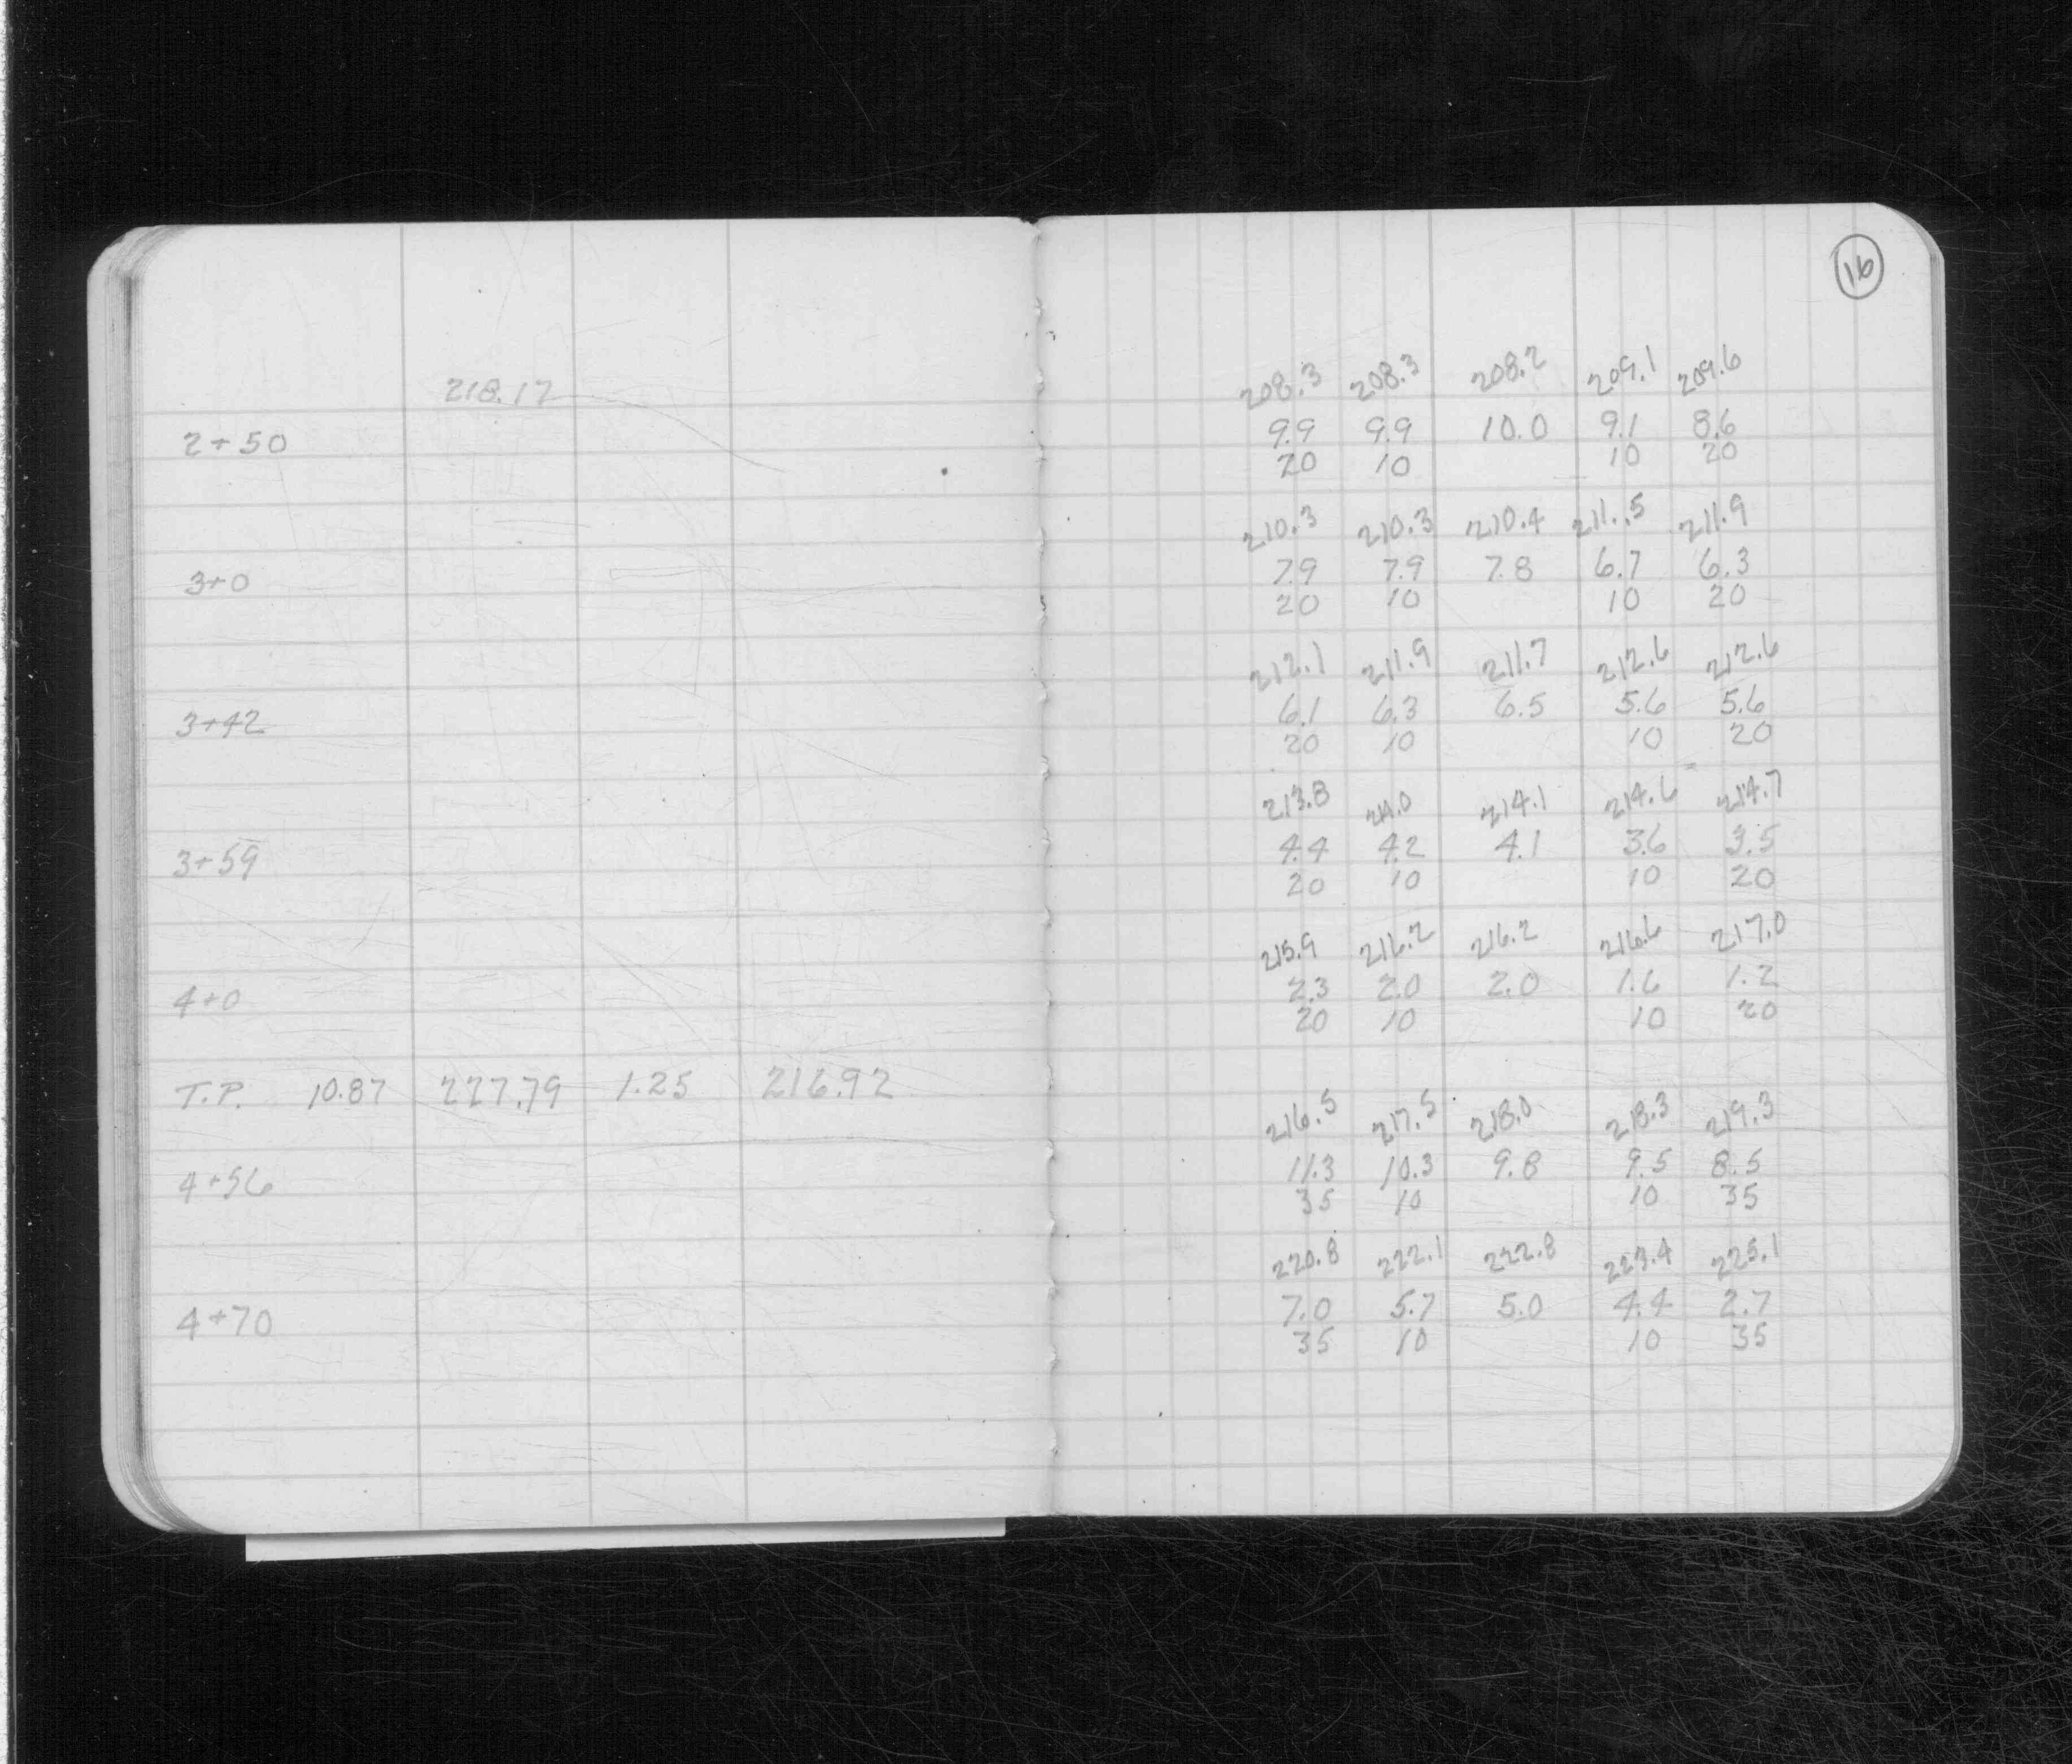 16
218.17
208.3 208.3 208.2 209.1 209.6
2+50 9.9 9.9 10.0 9.1 8.6
20 10 10 20
210.3 210.3 210.4 211.5 211.9
3+0 7.9 7.9 7.8 6.7 6.3
20 10 10 20
212.1 211.9 211.7 212.6 212.6
3+42 6.1 6.3 6.5 5.6 5.6
20 10 10 20
213.8 214.0 214.1 214.6 214.7
3+59 4.4 4.2 4.1 3.6 3.5
20 10 10 20
215.9 216.2 216.2 216.6 217.0
4+0 2.3 2.0 2.0 1.6 1.2
20 10 10 20
T.P. 10.87 227.79 1.25 216.92
216.5 217.5 218.0 218.3 219.3
4+56 11.3 10.3 9.8 9.5 8.5
35 10 10 35
220.8 222.1 222.8 223.4 225.1
4+70 7.0 5.7 5.0 4.4 2.7
35 10 10 35